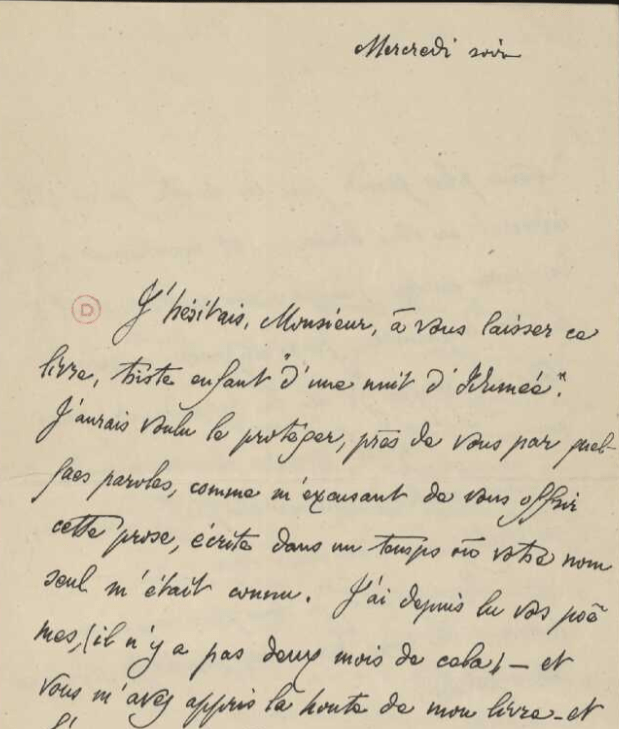 Mercredi soir
D
J'hésitais, Monsieur, à vous laisser ce
livre, triste enfant "d'une nuit d'Idumée".
J'aurais voulu le protéger, près de vous par quel-
ques paroles, comme m'excusant de vous offrir
cette prose, écrite dans un temps où votre nom
seul m'était connu. J'ai depuis lu vos poè
mes, (il n'y a pas deux mois de cela) – et
vous m'avez appris la honte de mon livre – et